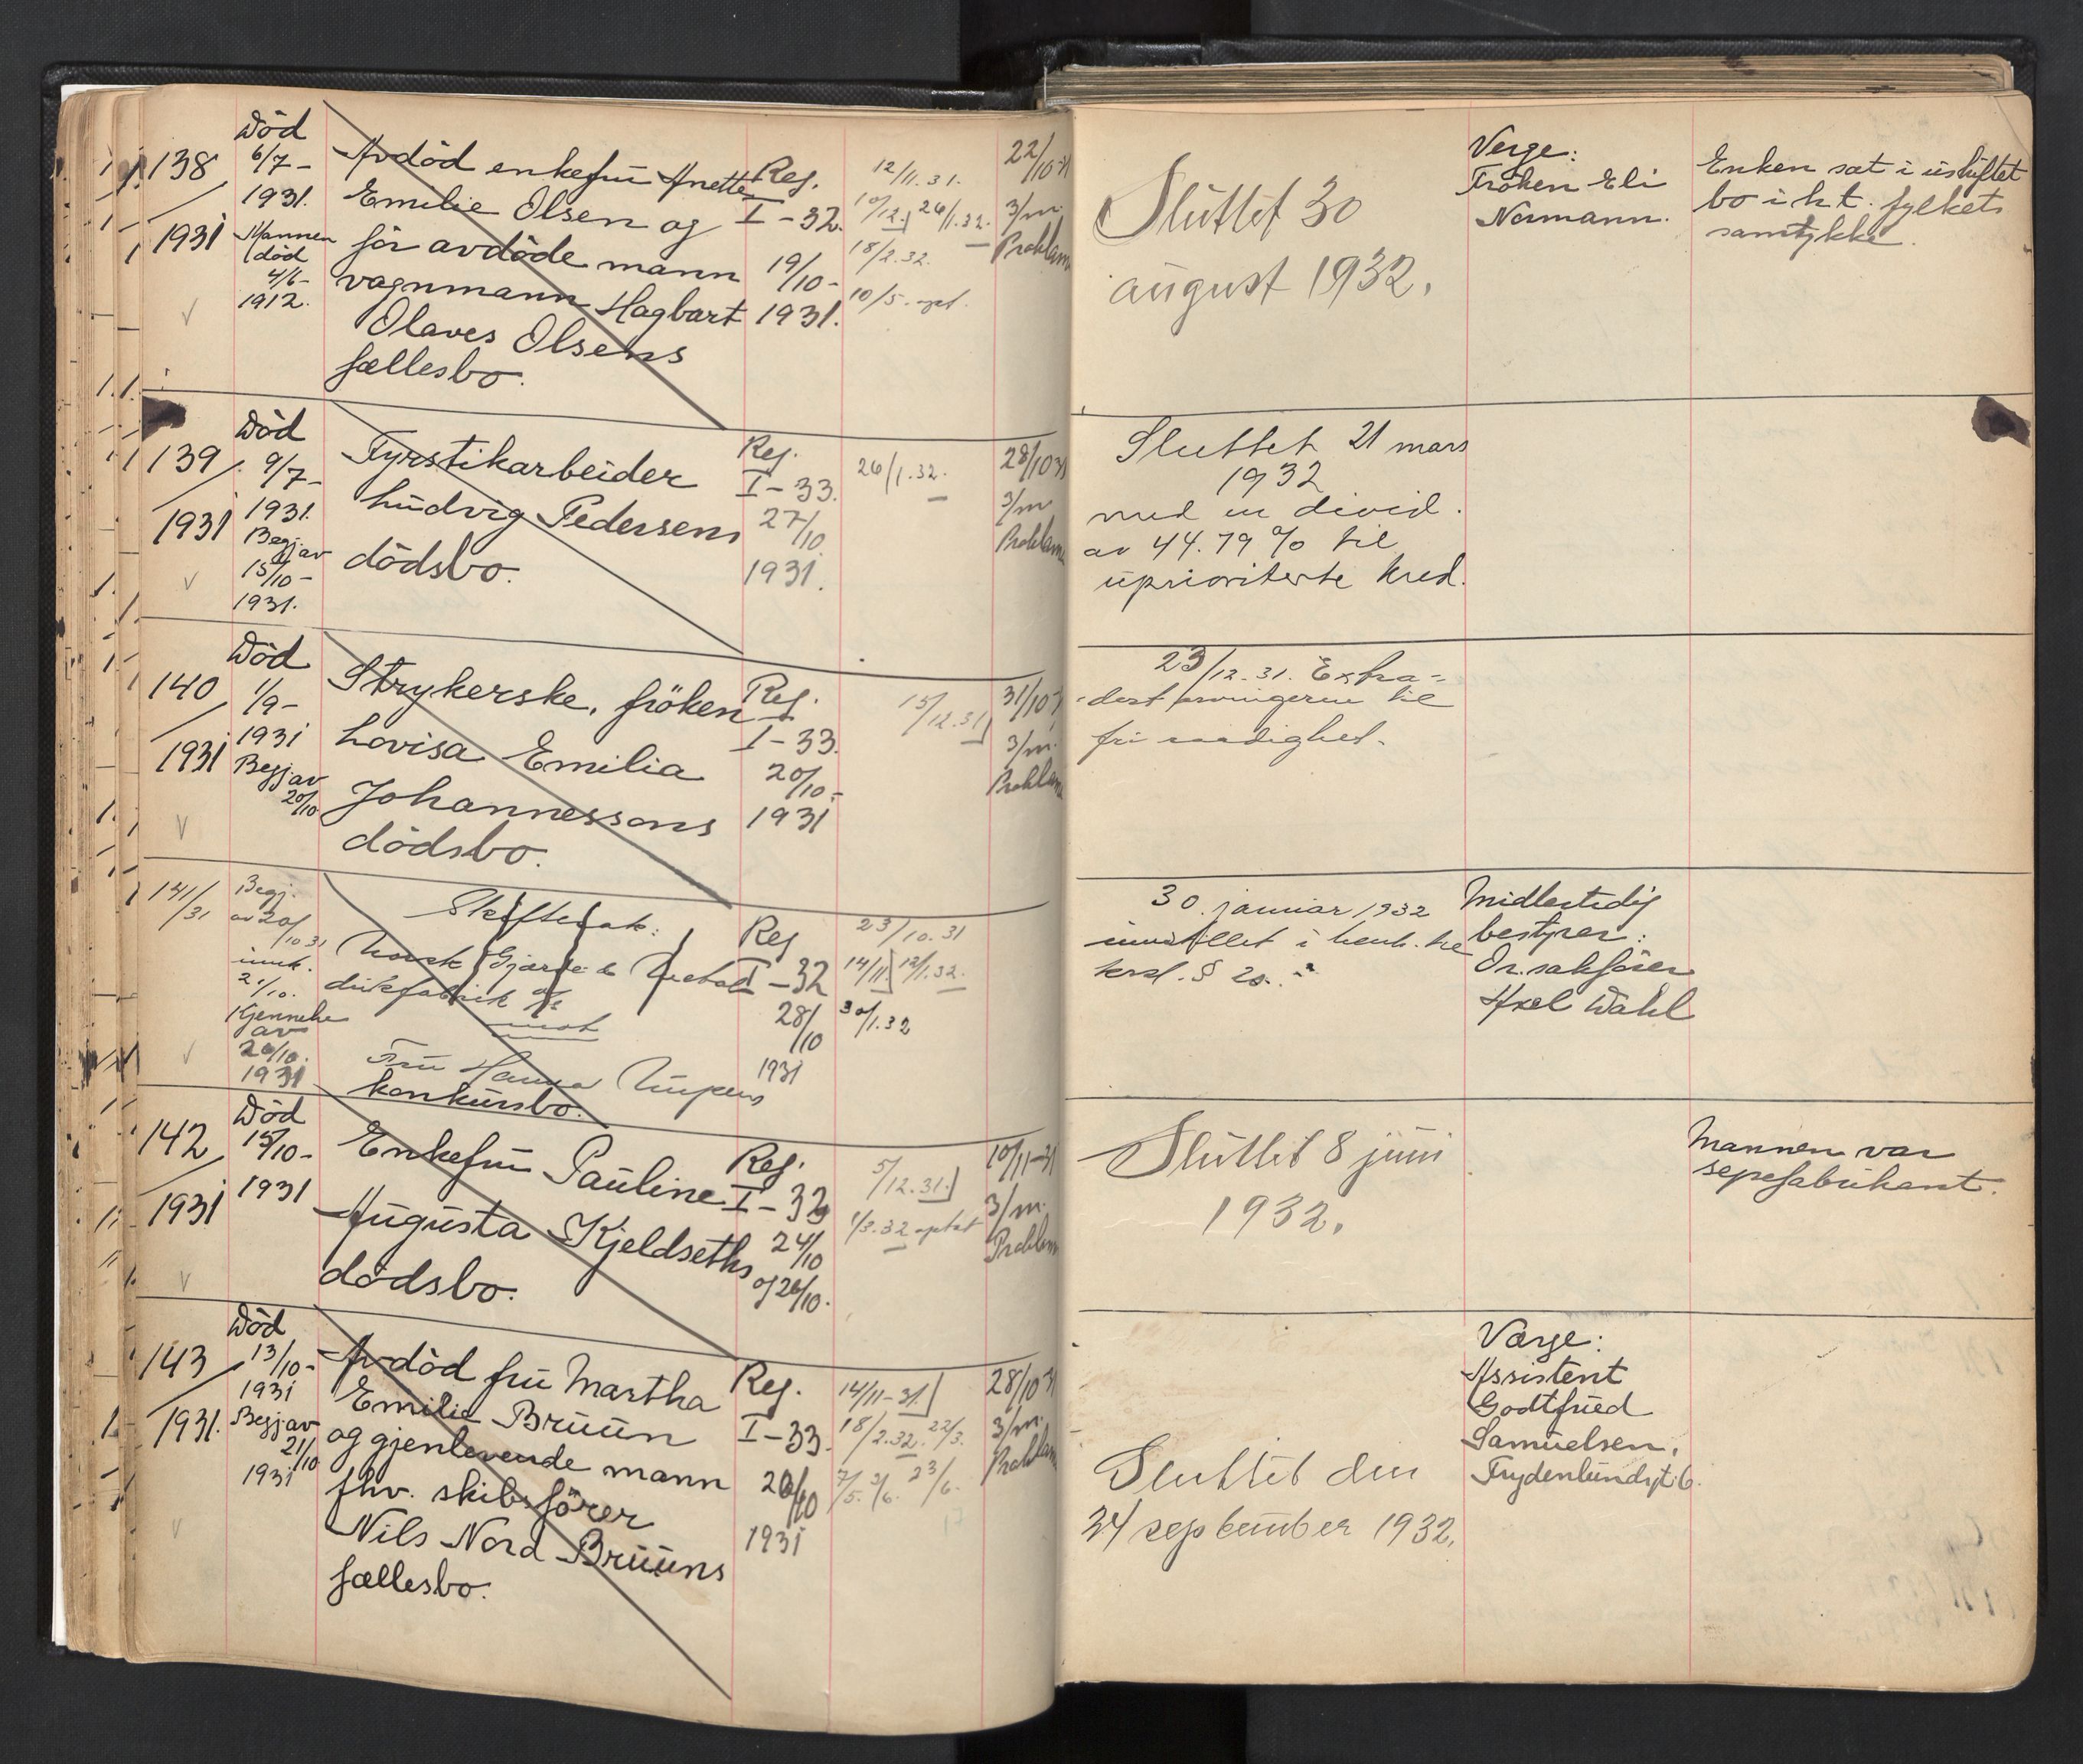 138
1931
Död
6/7 -
1931.
Mannen
död
4/6 -
1912.
Avdöd enkefru Anette
Emilie Olsen og
för avdöde mann
vognmann Hagbart
Olaves Olsens
fællesbo.
Reg.
I - 32.
19/10 -
1931.
12/11.31.
10/12. 26/1.32.
18/2.32.
10/5.
22/10 31
3/m.
Proklama
Sluttet 30
august 1932.
Verge:
Fröken Eli
Normann.
Enken sat i uskiftet
bo i h.t. fylkets
samtykke.
139
1931
Död
9/7 -
1931.
Begj. av
15/10 -
1931.
Fyrstikarbeider
Ludvig Pedersens
dödsbo.
Reg.
I - 33.
27/10
1931.
26/1.32.
28/10 31
3/m
Proklama
Sluttet 21 mars
1932
med en divid.
av 44.79 % til
uprioriterte kred.
140
1931
Död
1/9 -
1931
Begj. av
20/10
Strykerske, fröken
Lovisa Emilia
Johannessons
dödsbo.
Reg.
I - 33.
20/10 -
1931
15/12.31
31/10 31
3/m.
Proklama
23/12.31. Extra-
dert arvingerne til
fri raadighet.
141/31
Begj.
av 20/10 31
innk.
21/10.
Kjennelse
av
26/10.
1931
Skiftesak:
Norsk Gjærde &
dukfabrik A/S
mot
Fru Hanna
konkursbo.
Reg
I - 32
28/10
1931
23/10.31
14/11 12/1.32.
30/1.32
30. januar 1932
innstillet i henh. til
kksl. § 20.
Midlertidig
bestyrer:
Or. sakförer
Axel Wahl
142
1931
Död
15/10 -
1931
Enkefru Pauline
Augusta Kjeldseths
dödsbo.
Reg.
I - 33
24/10
og 26/10.
5/12.31.
1/3.32
10/11 - 31
3/m.
Proklama
Sluttet 8 juni
1932.
Mannen var
sepefabrikant.
143
1931.
Död
13/10 -
1931
Begj. av
21/10
1931
Avdöd fru Martha
Emilie Bruun
og gjenlevende mann
fhv. skibsförer
Nils Nord Bruuns
fællesbo.
Reg.
I - 33.
26/10
1931
14/11 - 31.
18/2.32. 22/3.
7/5. 3/6. 23/6.
28/10 31
3/m.
Proklama
Sluttet den
24 september 1932.
Værge:
Assistent
Godtfried
Samuelsen,
Frydenlundgt. 6.